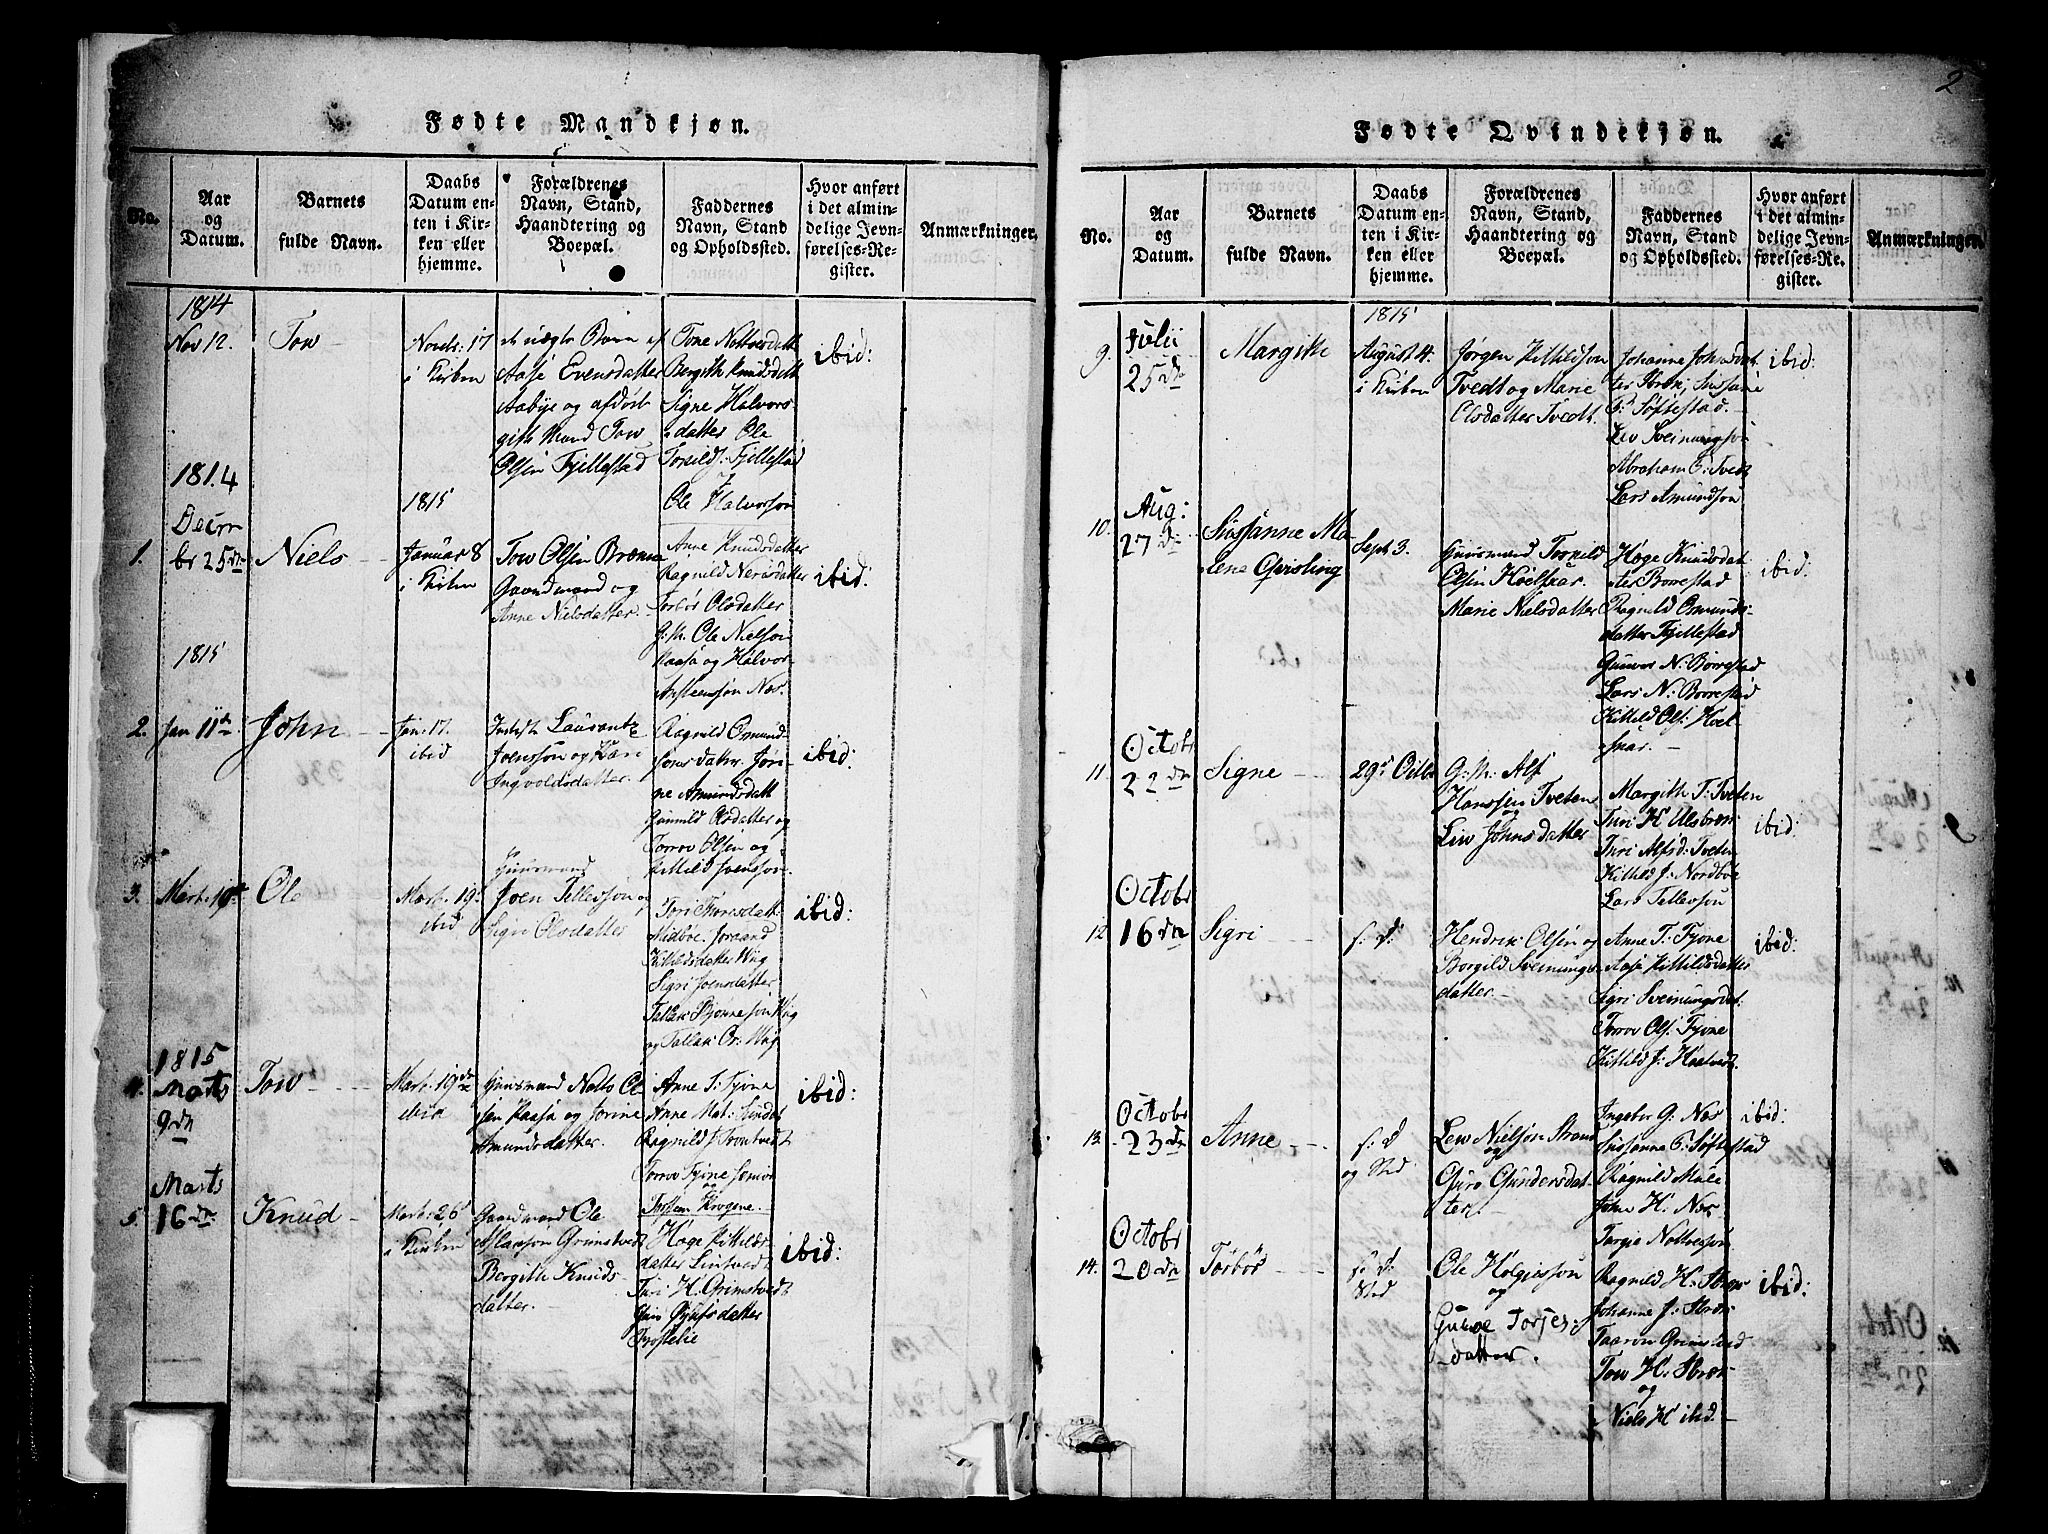 Fødte Mandkjøn.
No.
Aar
og
Datum.
Barnets
fulde Navn.
Daabs
Datum en-
ten i Kir-
ken eller
hjemme.
Forældrenes
Navn, Stand,
Haandtering og
Boepæl.
Faddernes
Navn, Stand
og Opholdssted.
Hvor anført
i det almin-
delige Jevn-
førelses-Re-
gister.
Anmærkninger.
1814
Nov 12.
Tow
Novb: 17
i Kirken
et uægte Barn af
Aase Evensdatter
Aabye og afdøde
gifte Mand Tow
Olsen Fjellestad
Tone Nottvesdatt
Bergith Knudsdatt
Signe Halvors-
datter Ole
Torkilds: Fjellestad
Ole Halvorson
ibid:
1.
1814
Decm
br 25de
Niels
1815
Januar 8
i Kirken
Tow Olsen
Gaardmand og
Anne Nielsdatter.
Anne Knudsdatter
Ragnild Nerisdatter
Torbør Olsdatter
G: M. Ole Nielson
Kaasa og Halvor
Ansteensøn Næs.
ibid:
2.
1815
Jan 11te
John
Jan: 17.
ibid
Inderst Laurantz
Joenssøn og Kari
Ingvoldsdatter.
Ragnild Osmund-
sens datter Jøri-
ne Amundsdatt
Gunnild Olsdatter og
Torov Olsen og
Kittild Svensson.
ibid:
3.
Mart. 10de
Ole
Mart. 19.
ibid
Huusmand
Joen Tellevsøn og
Sigri Olsdatter
Tori Thoresdatt
Midbøe. Joraand
Kittildsdatter Wiig
Sigri Joensdatter
Tallak Bjønnesøn Wiig
og Tallak Or: Wiig
ibid:
4.
1815
Marts
9de
Tow
Mart. 19de
ibid
Huusmand Notto Ol-
sen Kaasa og Jorine
Amundsdatter.
Anne T: Fjone
Anne Mat: Sundet
Ragnild J: Trontvedt
Torov Fjone Junior
og
Tosten Krogene.
ibid:
5.
Marts
16de
Knud
Mart. 26
i Kirken
Gaardmand Ole
Aslaksøn Grimstvedt
Bergith Knuds-
datter.
Hæge Kittilds-
datter Lintvedt
Turi H. Grimstvedt
ibid:
2
Fødte Qvindekjøn.
No.
Aar
og
Datum.
Barnets
fulde Navn.
Daabs
Datum en-
ten i Kir-
ken eller
hjemme.
Forældrenes
Navn, Stand,
Haandtering og
Boepæl.
Faddernes
Navn, Stand
og Opholdssted.
Hvor anført
i det almin-
delige Jevn-
førelses-Re-
gister.
Anmærkninger.
9.
Julii
25de
Margith
1815
August 4.
i Kirken
Jørgen Kittildson
Tvedt og Marie
Olsdatter Tvedt.
Johanne Johnsdat-
ter Strøm, Sussane
P: Søftestad.
Lev Sveinungsøn
Abraham E: Tvedt
Lars Amundsøn
ibid:
10.
Aug:
27de
Sussanne Ma-
lena Qvisling
Sept 3.
Huusmand Torkild
Olsen Hoelskaar.
Marie Nielsdatter
Hæge Knudsdat-
ter Borrestad
Ragnild Osmunds-
datter Fjellestad
Gunvor N: Borrestad
Lars N: Borrestad
Kittild Ols: Hoel-
skar.
ibid:
11.
Octobr
22de
Signe
29de Octbr
G: M: Alf
Hanssen Tveten
og
Liv Johnsdatter
Margith T: Tveten
Turi H Ulsbroe
Turi Alfsd: Tveten
Kittild J: Nordbøe
Lars Tellevson
ibid:
12
Octobr
16de
Sigri
s: D:
Hendrik Olsen og
Borgild Sveinungs-
datter.
Anne T: Fjone
Aase Kittildsdatter
Sigri Sveinungsdat:
Torov Ols: Fjone
Kittild J: Hoelvedt
ibid:
13.
Octobr
23de
Anne
s: D
og Sted
Lew Nielson Strand
og
Guro Gundersdat-
ter.
Ingebor G: Næs
Sussanna P: Søftestad
Ragnild Moe
John H. Næs
Torgie Nottvesson
ibid:
14.
Octobr
20de
Torbør
s: D:
Sted
Ole Holgiesson
og
Gunne Torjes-
datter.
Ragnild H: Strøm
Johanne J: Strøm
Taaron Grimstvd
Tow H: Strøm
og
Niels H ibid.
ibid: